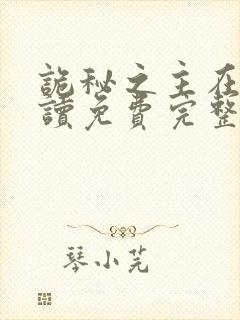 詭秘之主在
讀免費完整
琴小芫